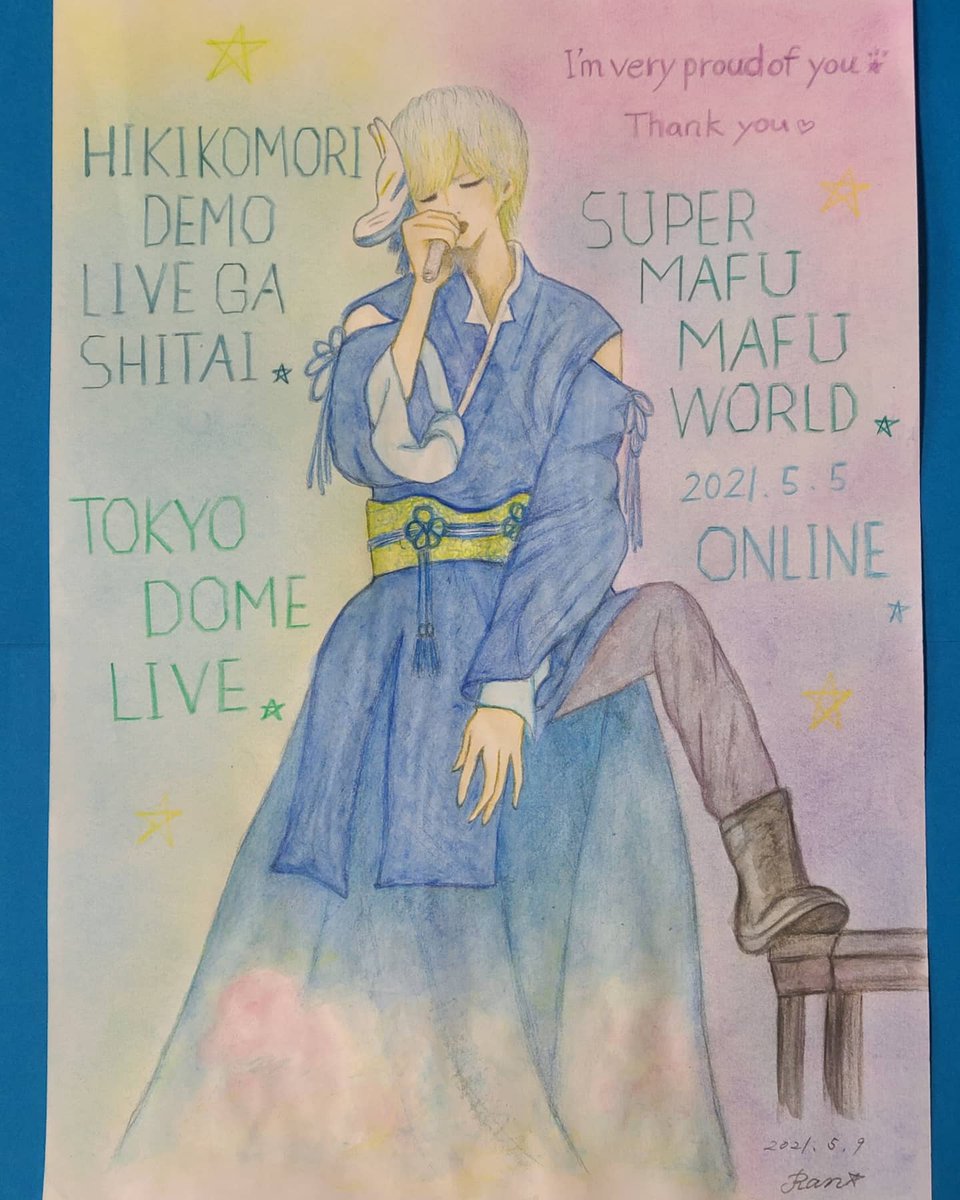 I'm very proud of you
Thank you♡
HIKIKOMORI
DEMO
LIVE GA
SHITAI.☆
SUPER
MAFU
MAFU
WORLD.☆
2021.5.5
ONLINE
☆
TOKYO
DOME
LIVE.☆
2021.5.9
Ran☆